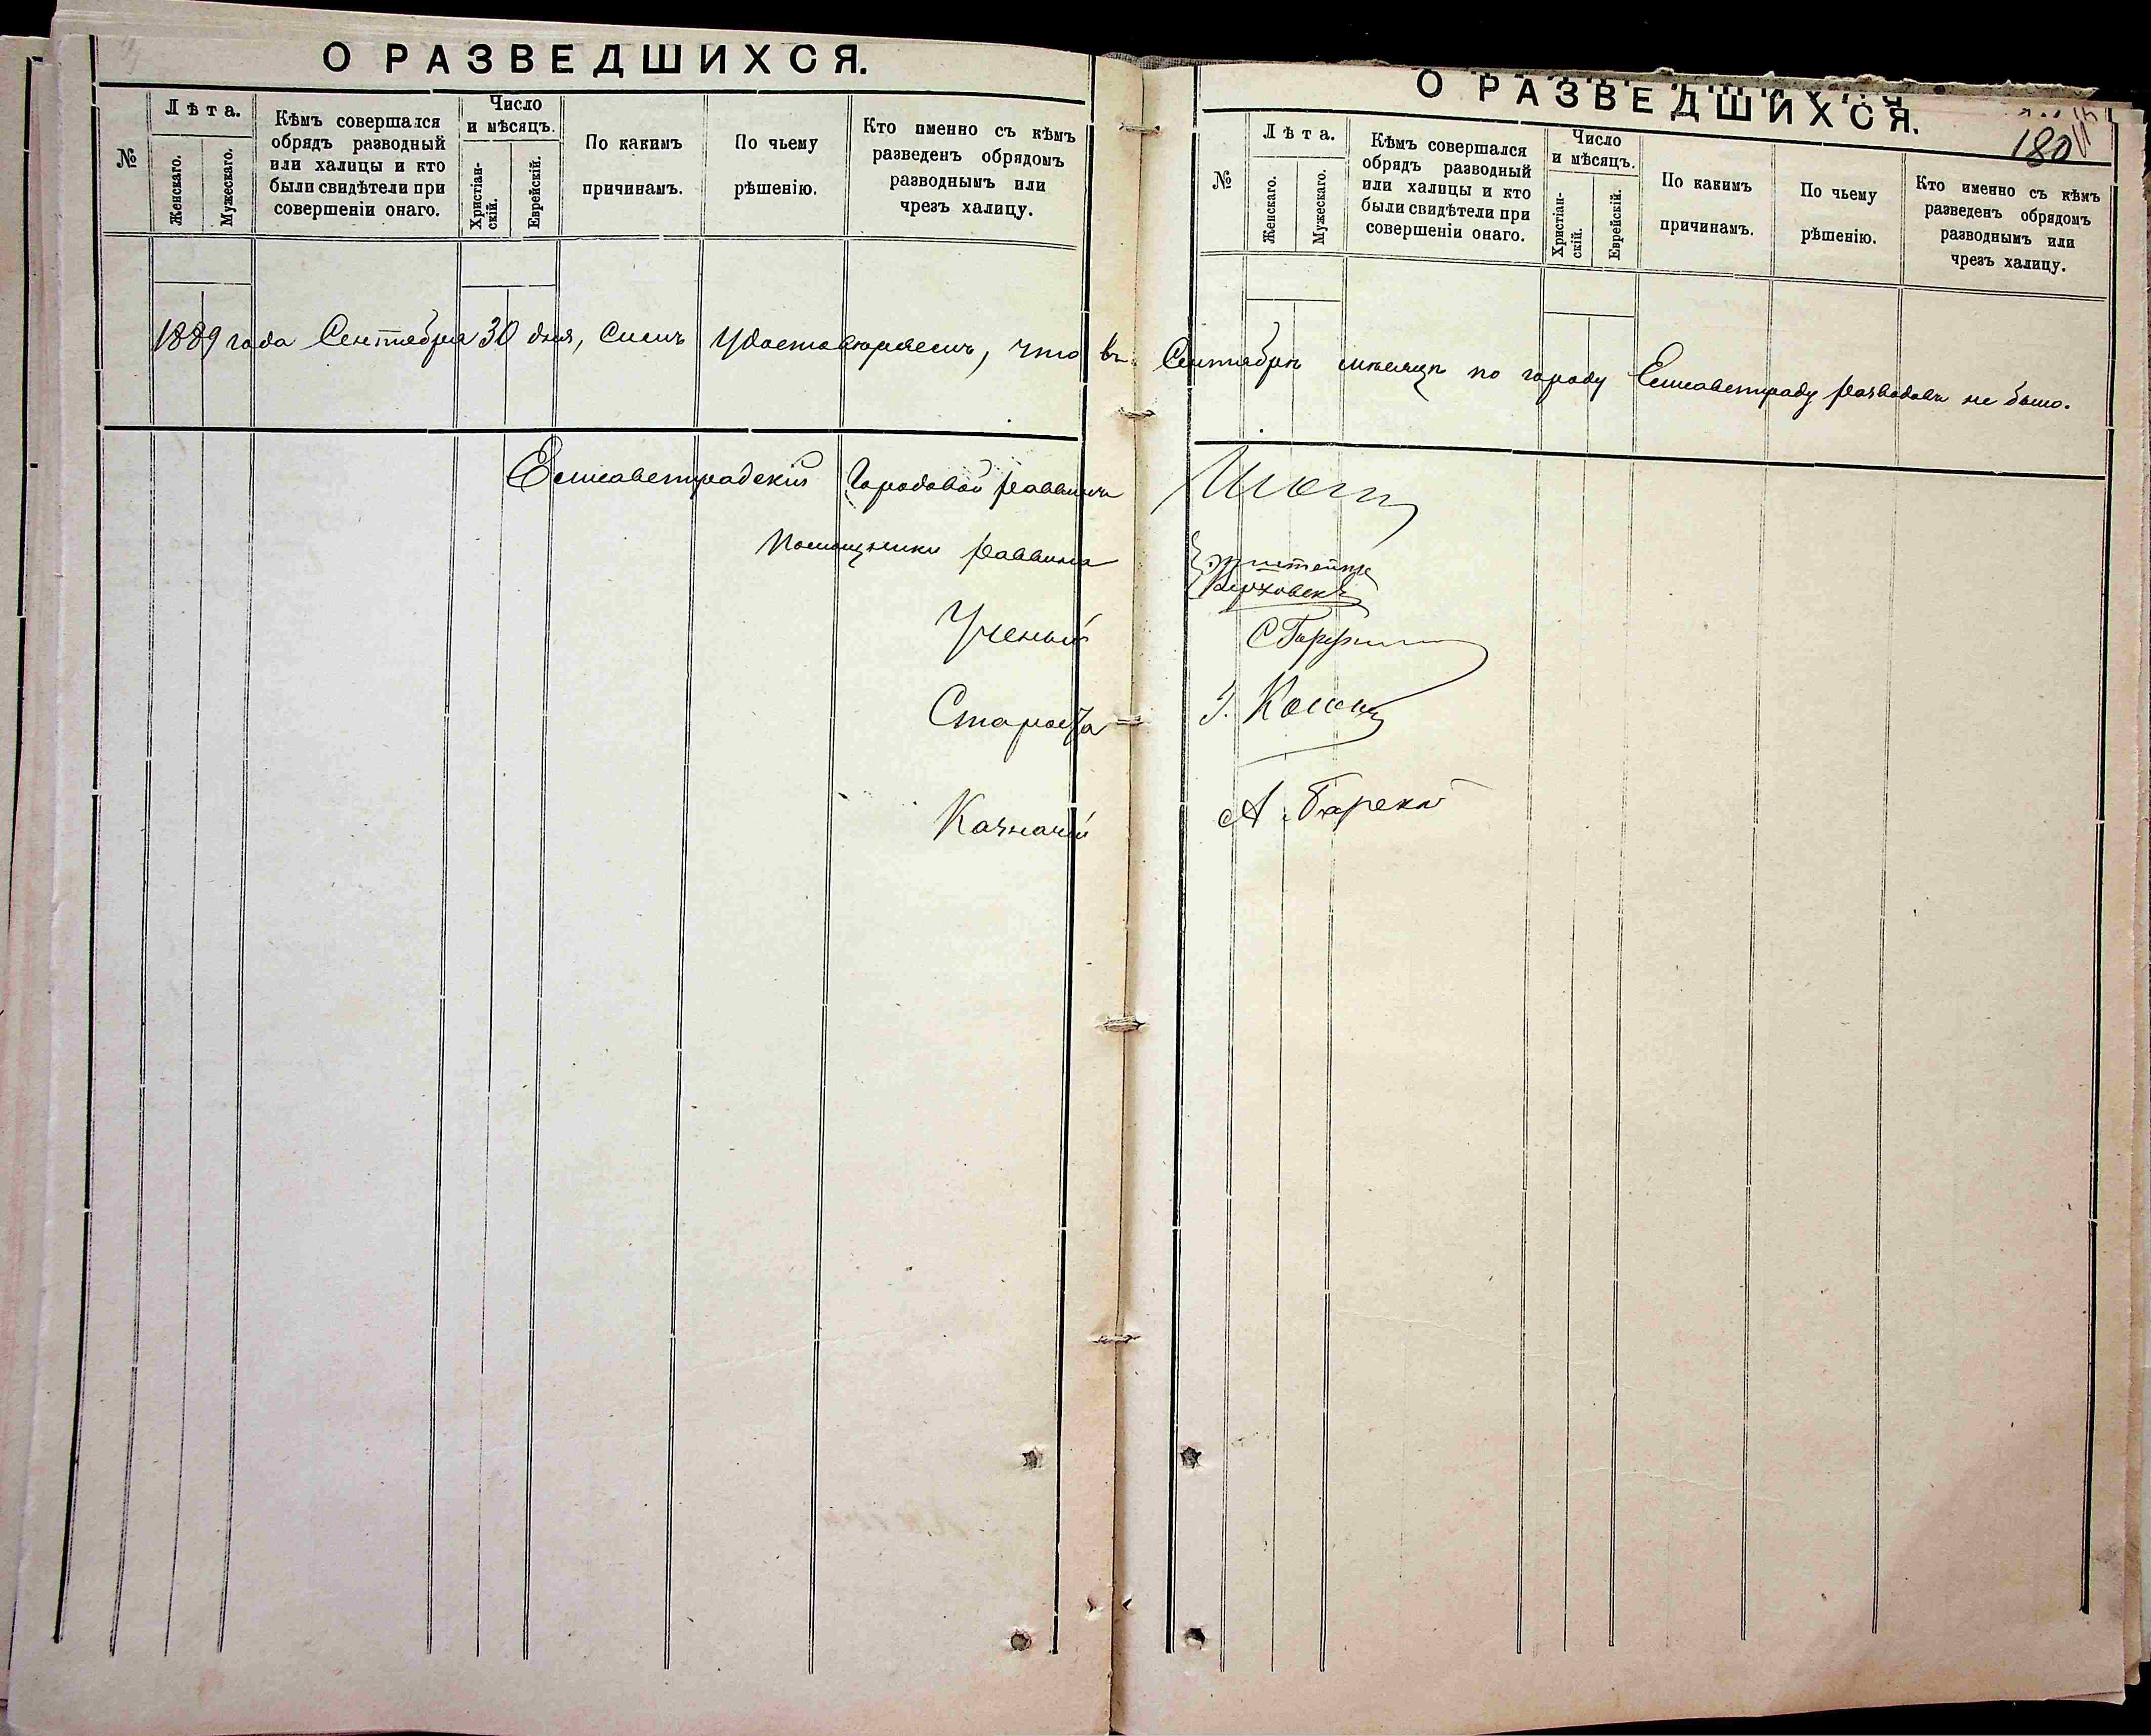 О РАЗВЕДШИХСЯ.
№
Лѣта.
Женскаго.
Мужескаго.
Кѣмъ совершался
обрядъ разводный
или халицы и кто
были свидѣтели при
совершеніи онаго.
Число
и мѣсяцъ.
Христіан-
скій.
Еврейскій.
По какимъ
причинамъ.
По чьему
рѣшенію.
Кто именно съ кѣмъ
разведенъ обрядомъ
разводнымъ или
чрезъ халицу.
О РАЗВЕДШИХСЯ.
180
№
Лѣта.
Женскаго.
Мужескаго.
Кѣмъ совершался
обрядъ разводный
или халицы и кто
были свидѣтели при
совершеніи онаго.
Число
и мѣсяцъ.
Христіан-
скій.
Еврейскій.
По какимъ
причинамъ.
По чьему
рѣшенію.
Кто именно съ кѣмъ
разведенъ обрядомъ
разводнымъ или
чрезъ халицу.
1889 года Сентября 30 дня, Симъ Удостовѣряемъ, что въ Сентябрѣ мѣсяцѣ по городу Елисаветграду разводовъ не было.
Елисаветградскій Городовой раввинъ
Помощники раввина
Ученый
Староста
Казначей